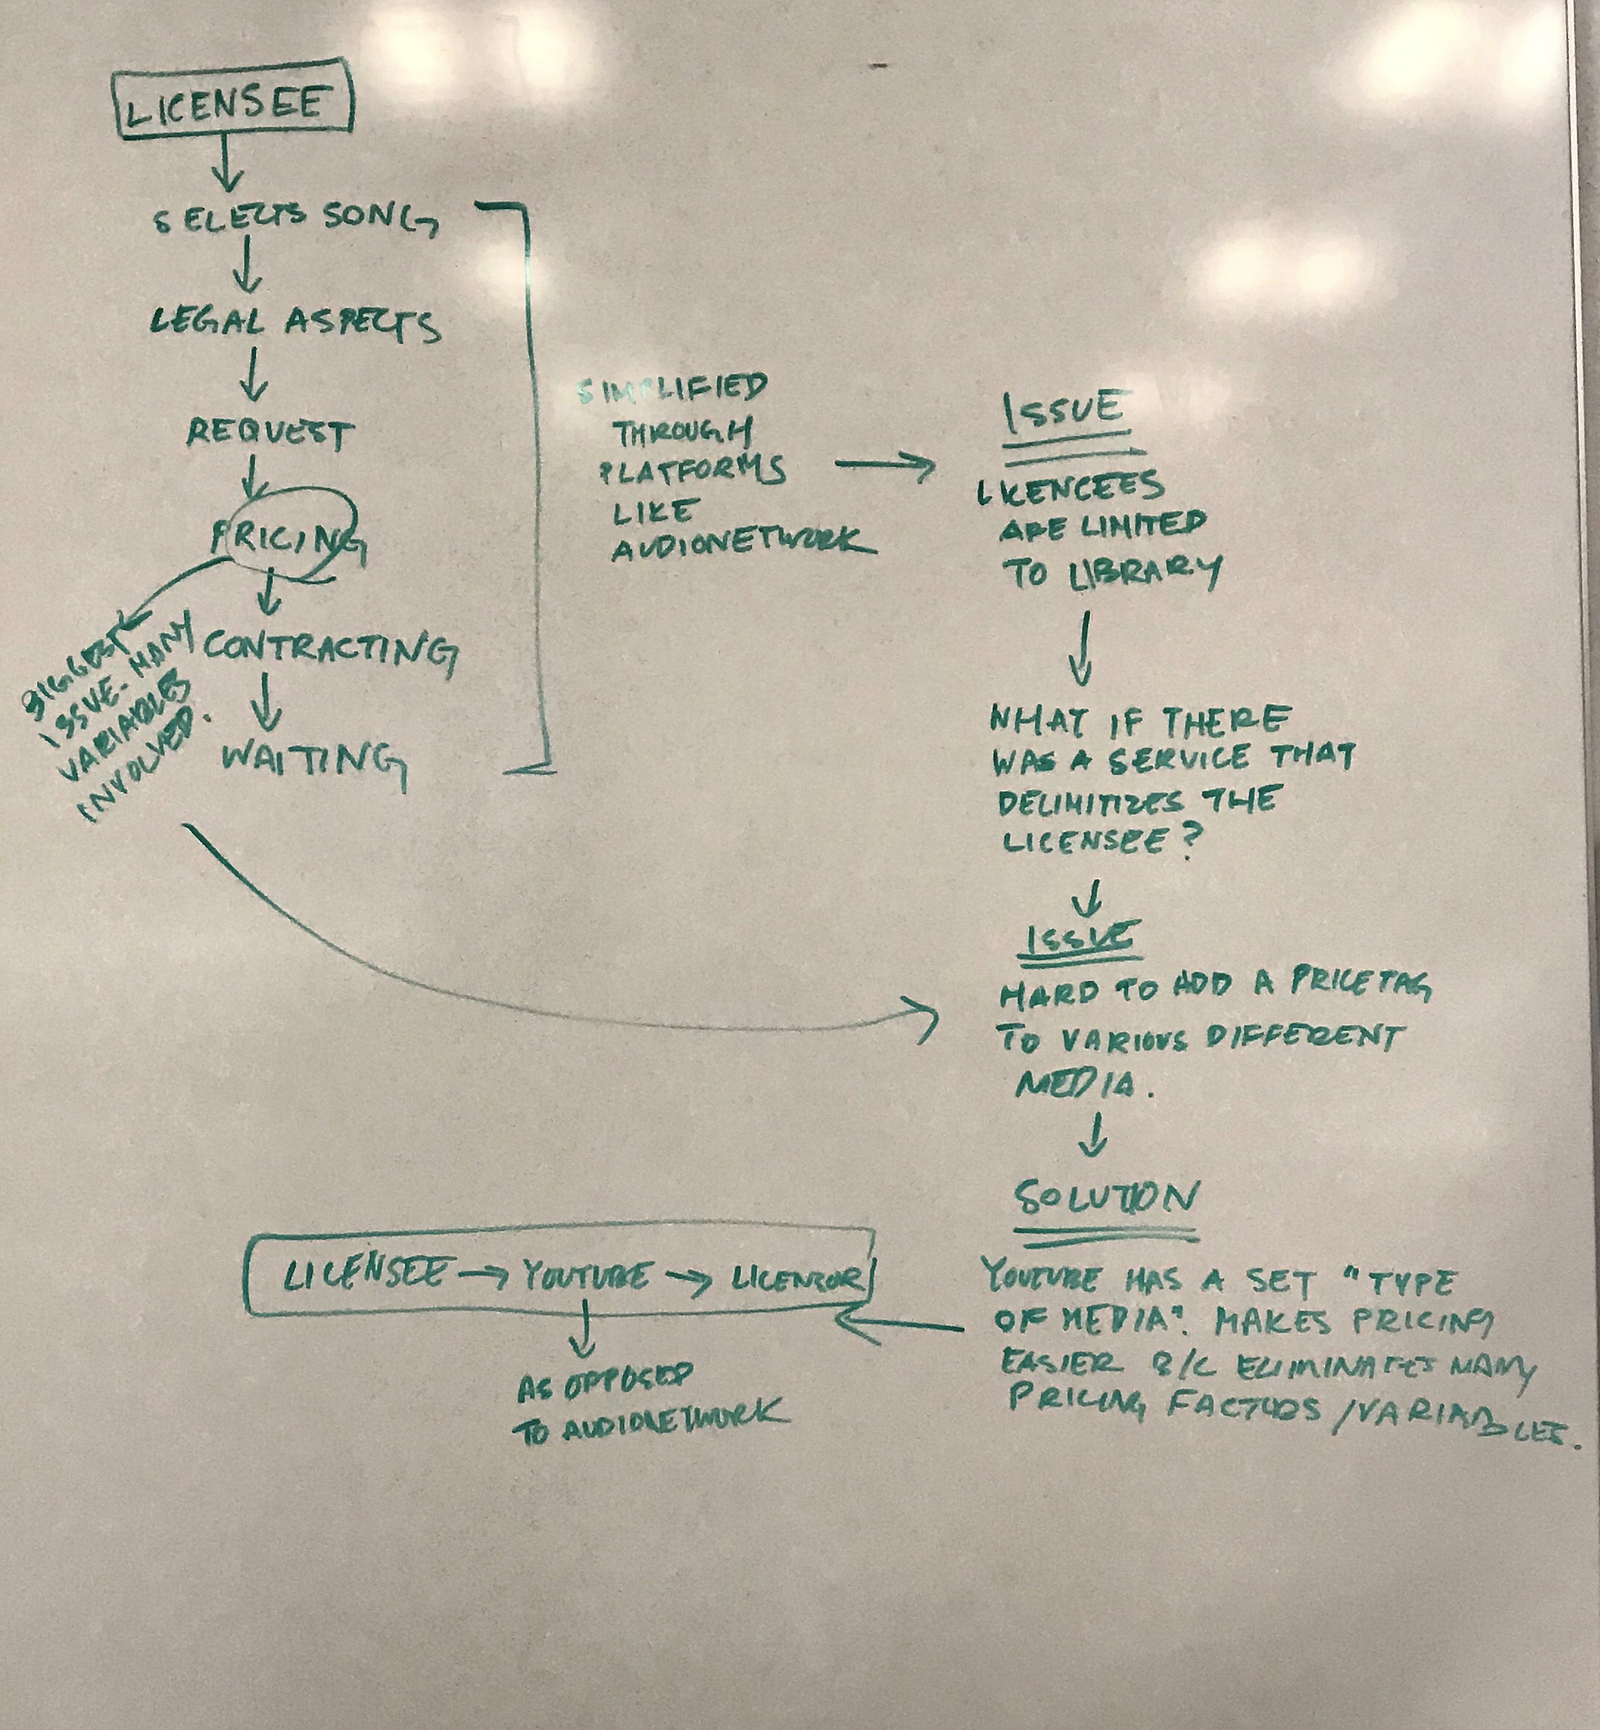 LICENSEE
SELECTS SONG
LEGAL ASPECTS
REQUEST
PRICING
CONTRACTING
WAITING
BIGGEST
ISSUE. MANY
VARIABLES
INVOLVED.
SIMPLIFIED
THROUGH
PLATFORMS
LIKE
AUDIONETWORK
ISSUE
LICENCEES
ARE LIMITED
TO LIBRARY
WHAT IF THERE
WAS A SERVICE THAT
DELIMITIZES THE
LICENSEE?
ISSUE
HARD TO ADD A PRICETAG
TO VARIOUS DIFFERENT
MEDIA.
SOLUTION
YOUTUBE HAS A SET "TYPE
OF MEDIA". MAKES PRICING
EASIER B/C ELIMINATES MANY
PRICING FACTORS/VARIABLES.
LICENSEE → YOUTUBE → LICENSOR
AS OPPOSED
TO AUDIONETWORK